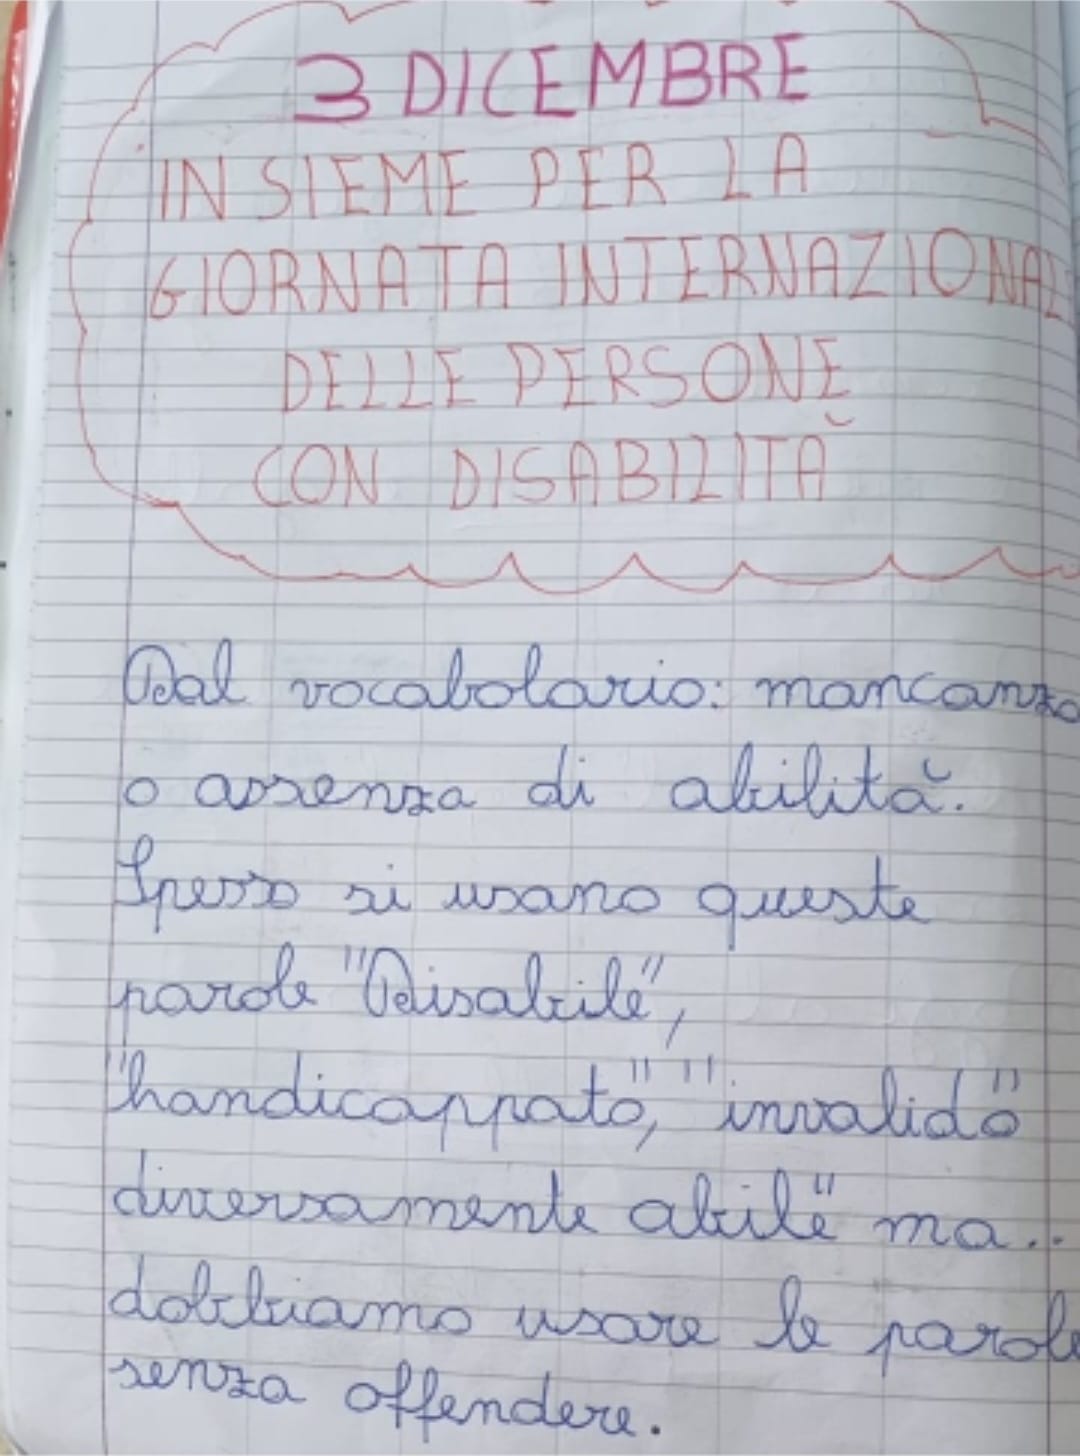 3 DICEMBRE
INSIEME PER LA
GIORNATA INTERNAZIONALE
DELLE PERSONE
CON DISABILITÀ
Dal vocabolario: mancanza
o assenza di abilità.
Spesso si usano queste
parole "Disabile",
"handicappato," "invalido"
diversamente abile" ma..
dobbiamo usare le parole
senza offendere.